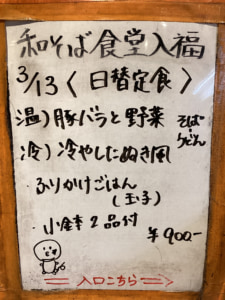 和そば食堂入福
3/13〈日替定食〉
温)豚バラと野菜
そば・うどん
冷)冷やしたぬき風
・ふりかけごはん
(玉子)
・小鉢2品付
¥900-
入口こちら